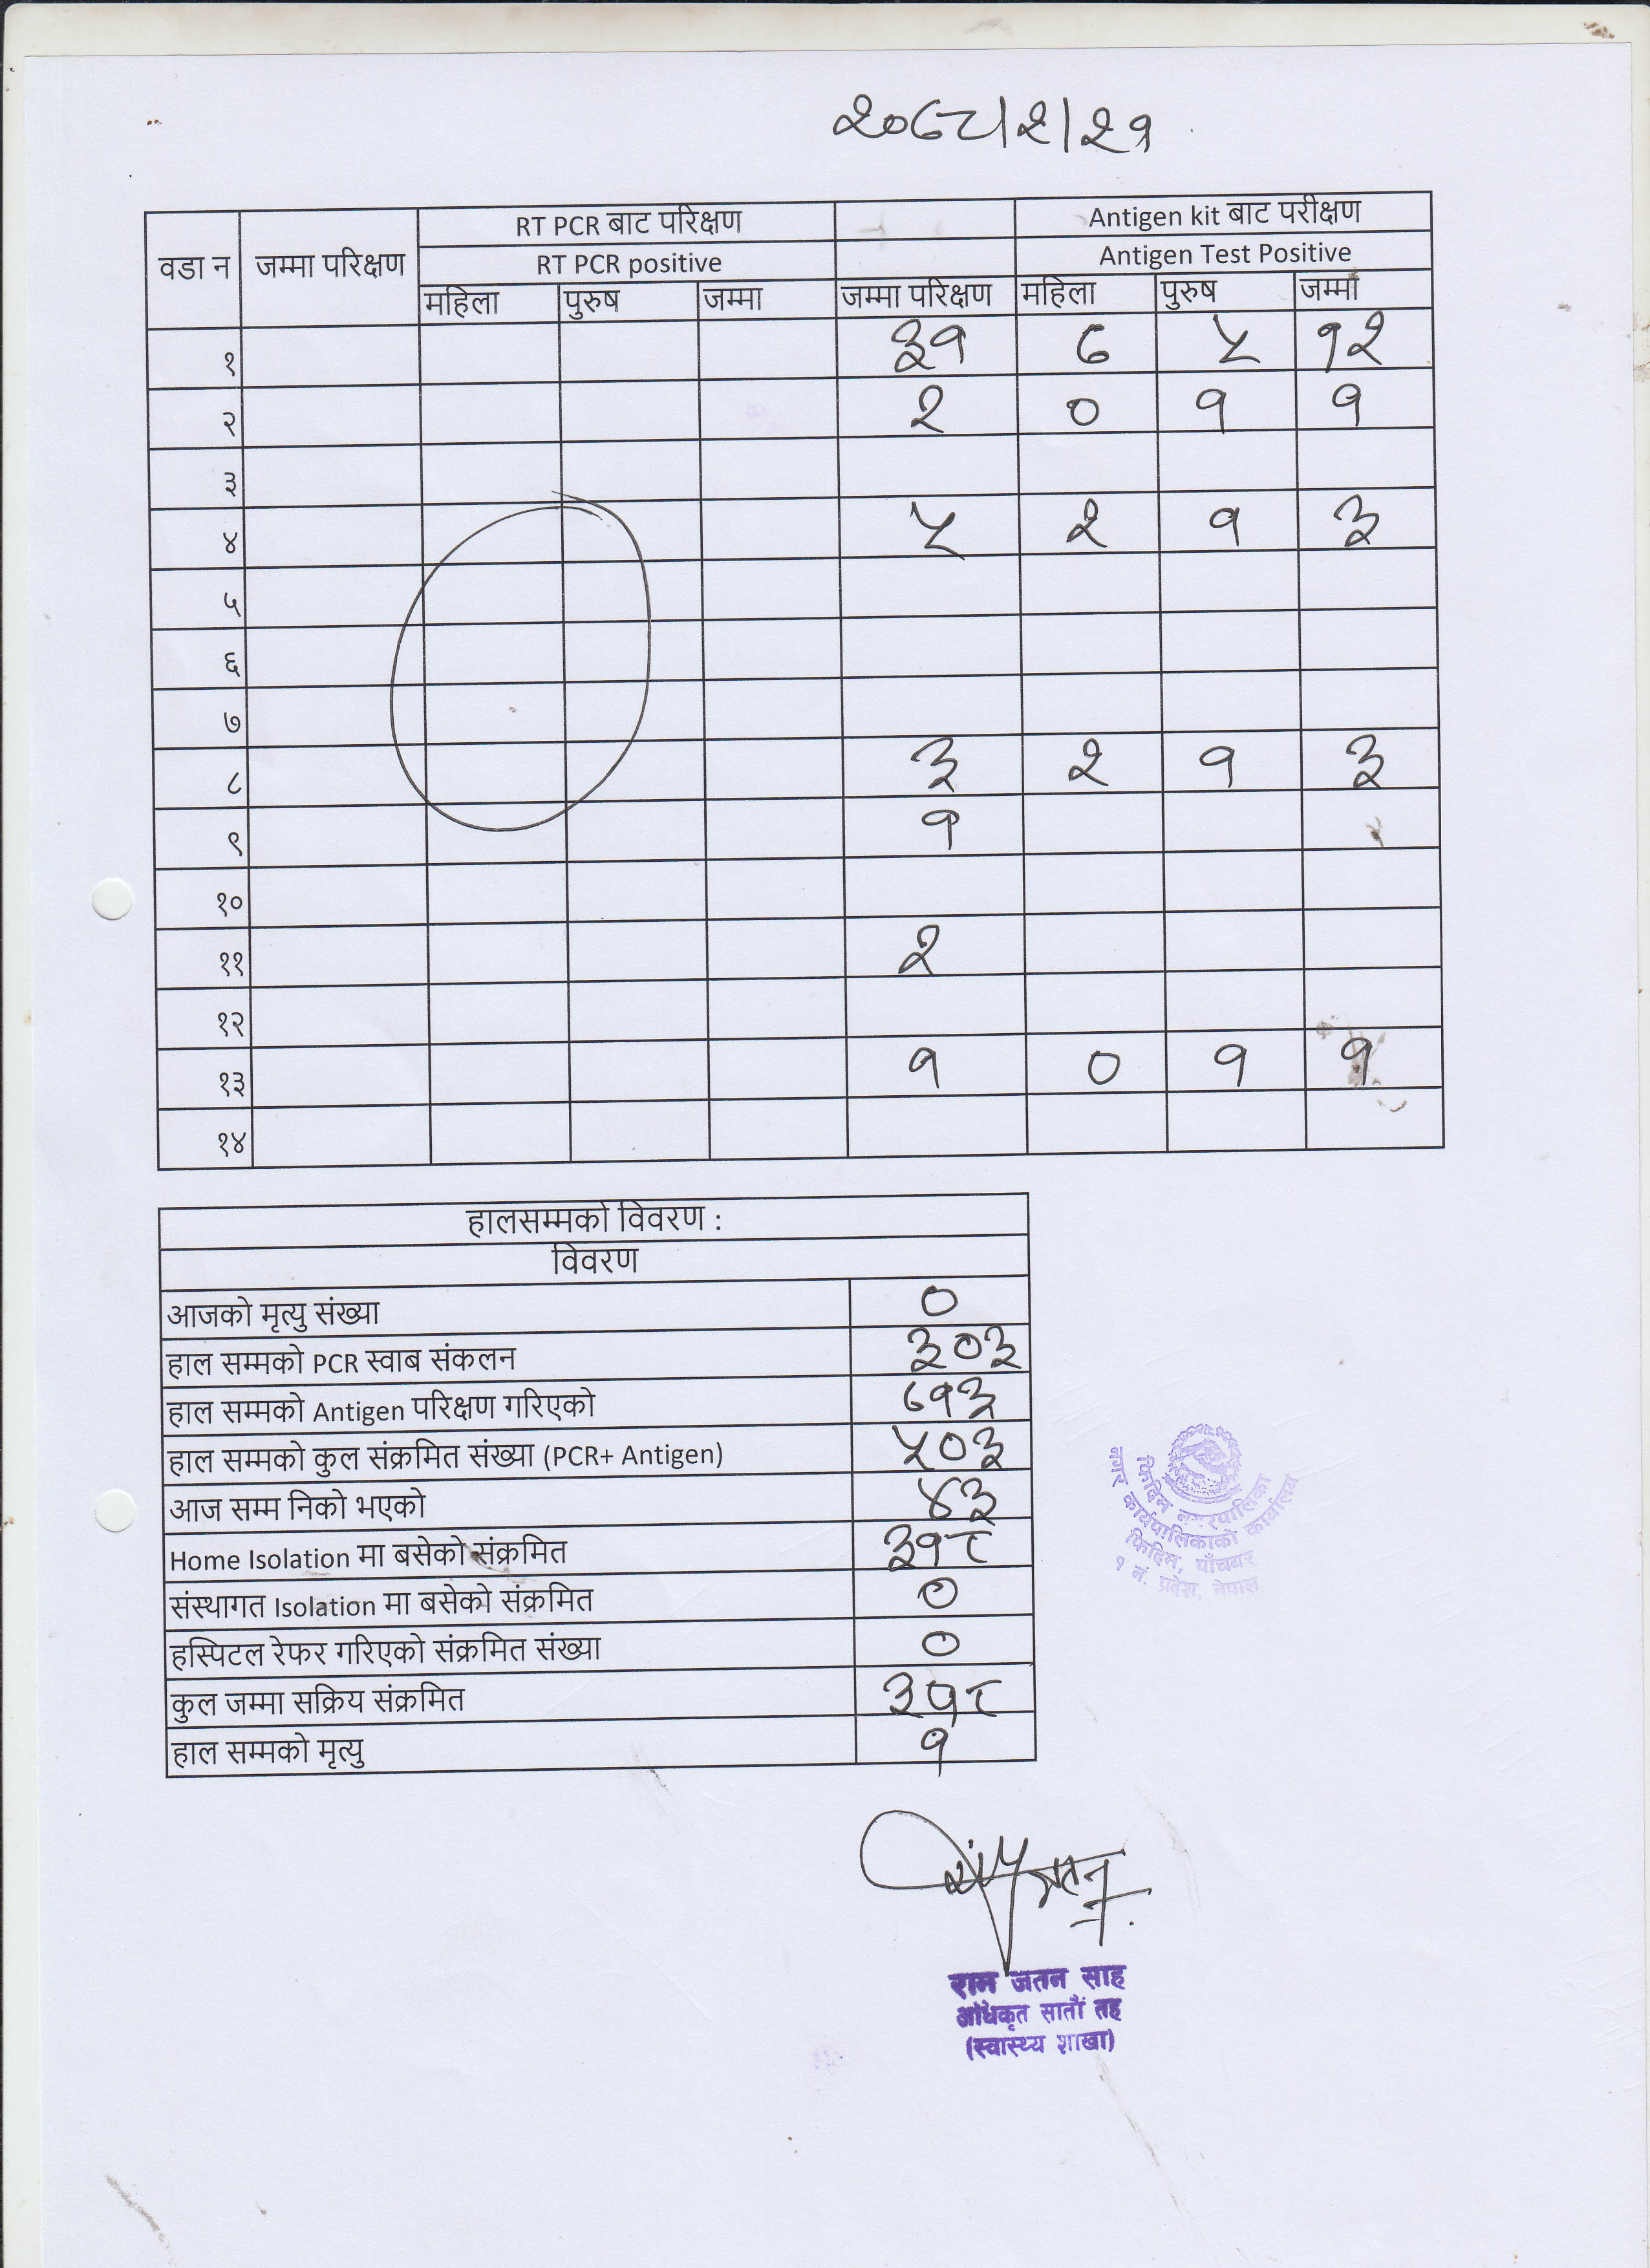 २०७८/२/२१
वडा न जम्मा परिक्षण RT PCR बाट परिक्षण Antigen kit बाट परीक्षण
RT PCR positive Antigen Test Positive
महिला पुरुष जम्मा जम्मा परिक्षण महिला पुरुष जम्मा
१ ३१ ७ ५ १२
२ २ ० १ १
३
४ ५ २ १ ३
५
६
७
८ ३ २ १ ३
९ १
१०
११ २
१२
१३ १ ० १ १
१४
हालसम्मको विवरण :
विवरण
आजको मृत्यु संख्या ०
हाल सम्मको PCR स्वाब संकलन ३०३
हाल सम्मको Antigen परिक्षण गरिएको ७१३
हाल सम्मको कुल संक्रमित संख्या (PCR+ Antigen) ५०३
आज सम्म निको भएको ४३
Home Isolation मा बसेको संक्रमित ३१८
संस्थागत Isolation मा बसेको संक्रमित ०
हस्पिटल रेफर गरिएको संक्रमित संख्या ०
कुल जम्मा सक्रिय संक्रमित ३१८
हाल सम्मको मृत्यु १
फिदिम नगरपालिका
नगर कार्यपालिकाको कार्यालय
फिदिम, पाँचथर
१ नं. प्रदेश, नेपाल
राम जतन साह
अधिकृत सातौं तह
(स्वास्थ्य शाखा)